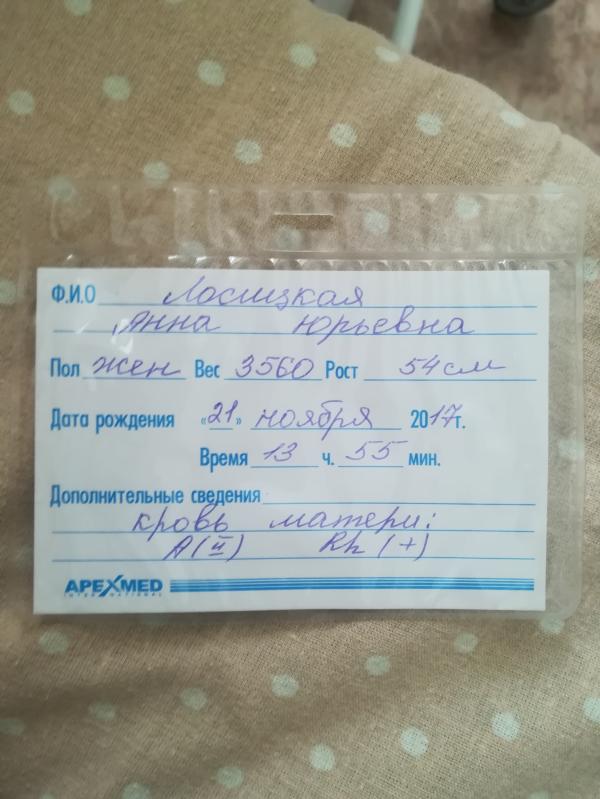 Ф.И.О Лосицкая
Анна Юрьевна
Пол жен Вес 3560 Рост 54см
Дата рождения «21» ноября 2017г.
Время 13 ч. 55 мин.
Дополнительные сведения
кровь матери:
A(II) Rh(+)
APEXMED
INTERNATIONAL